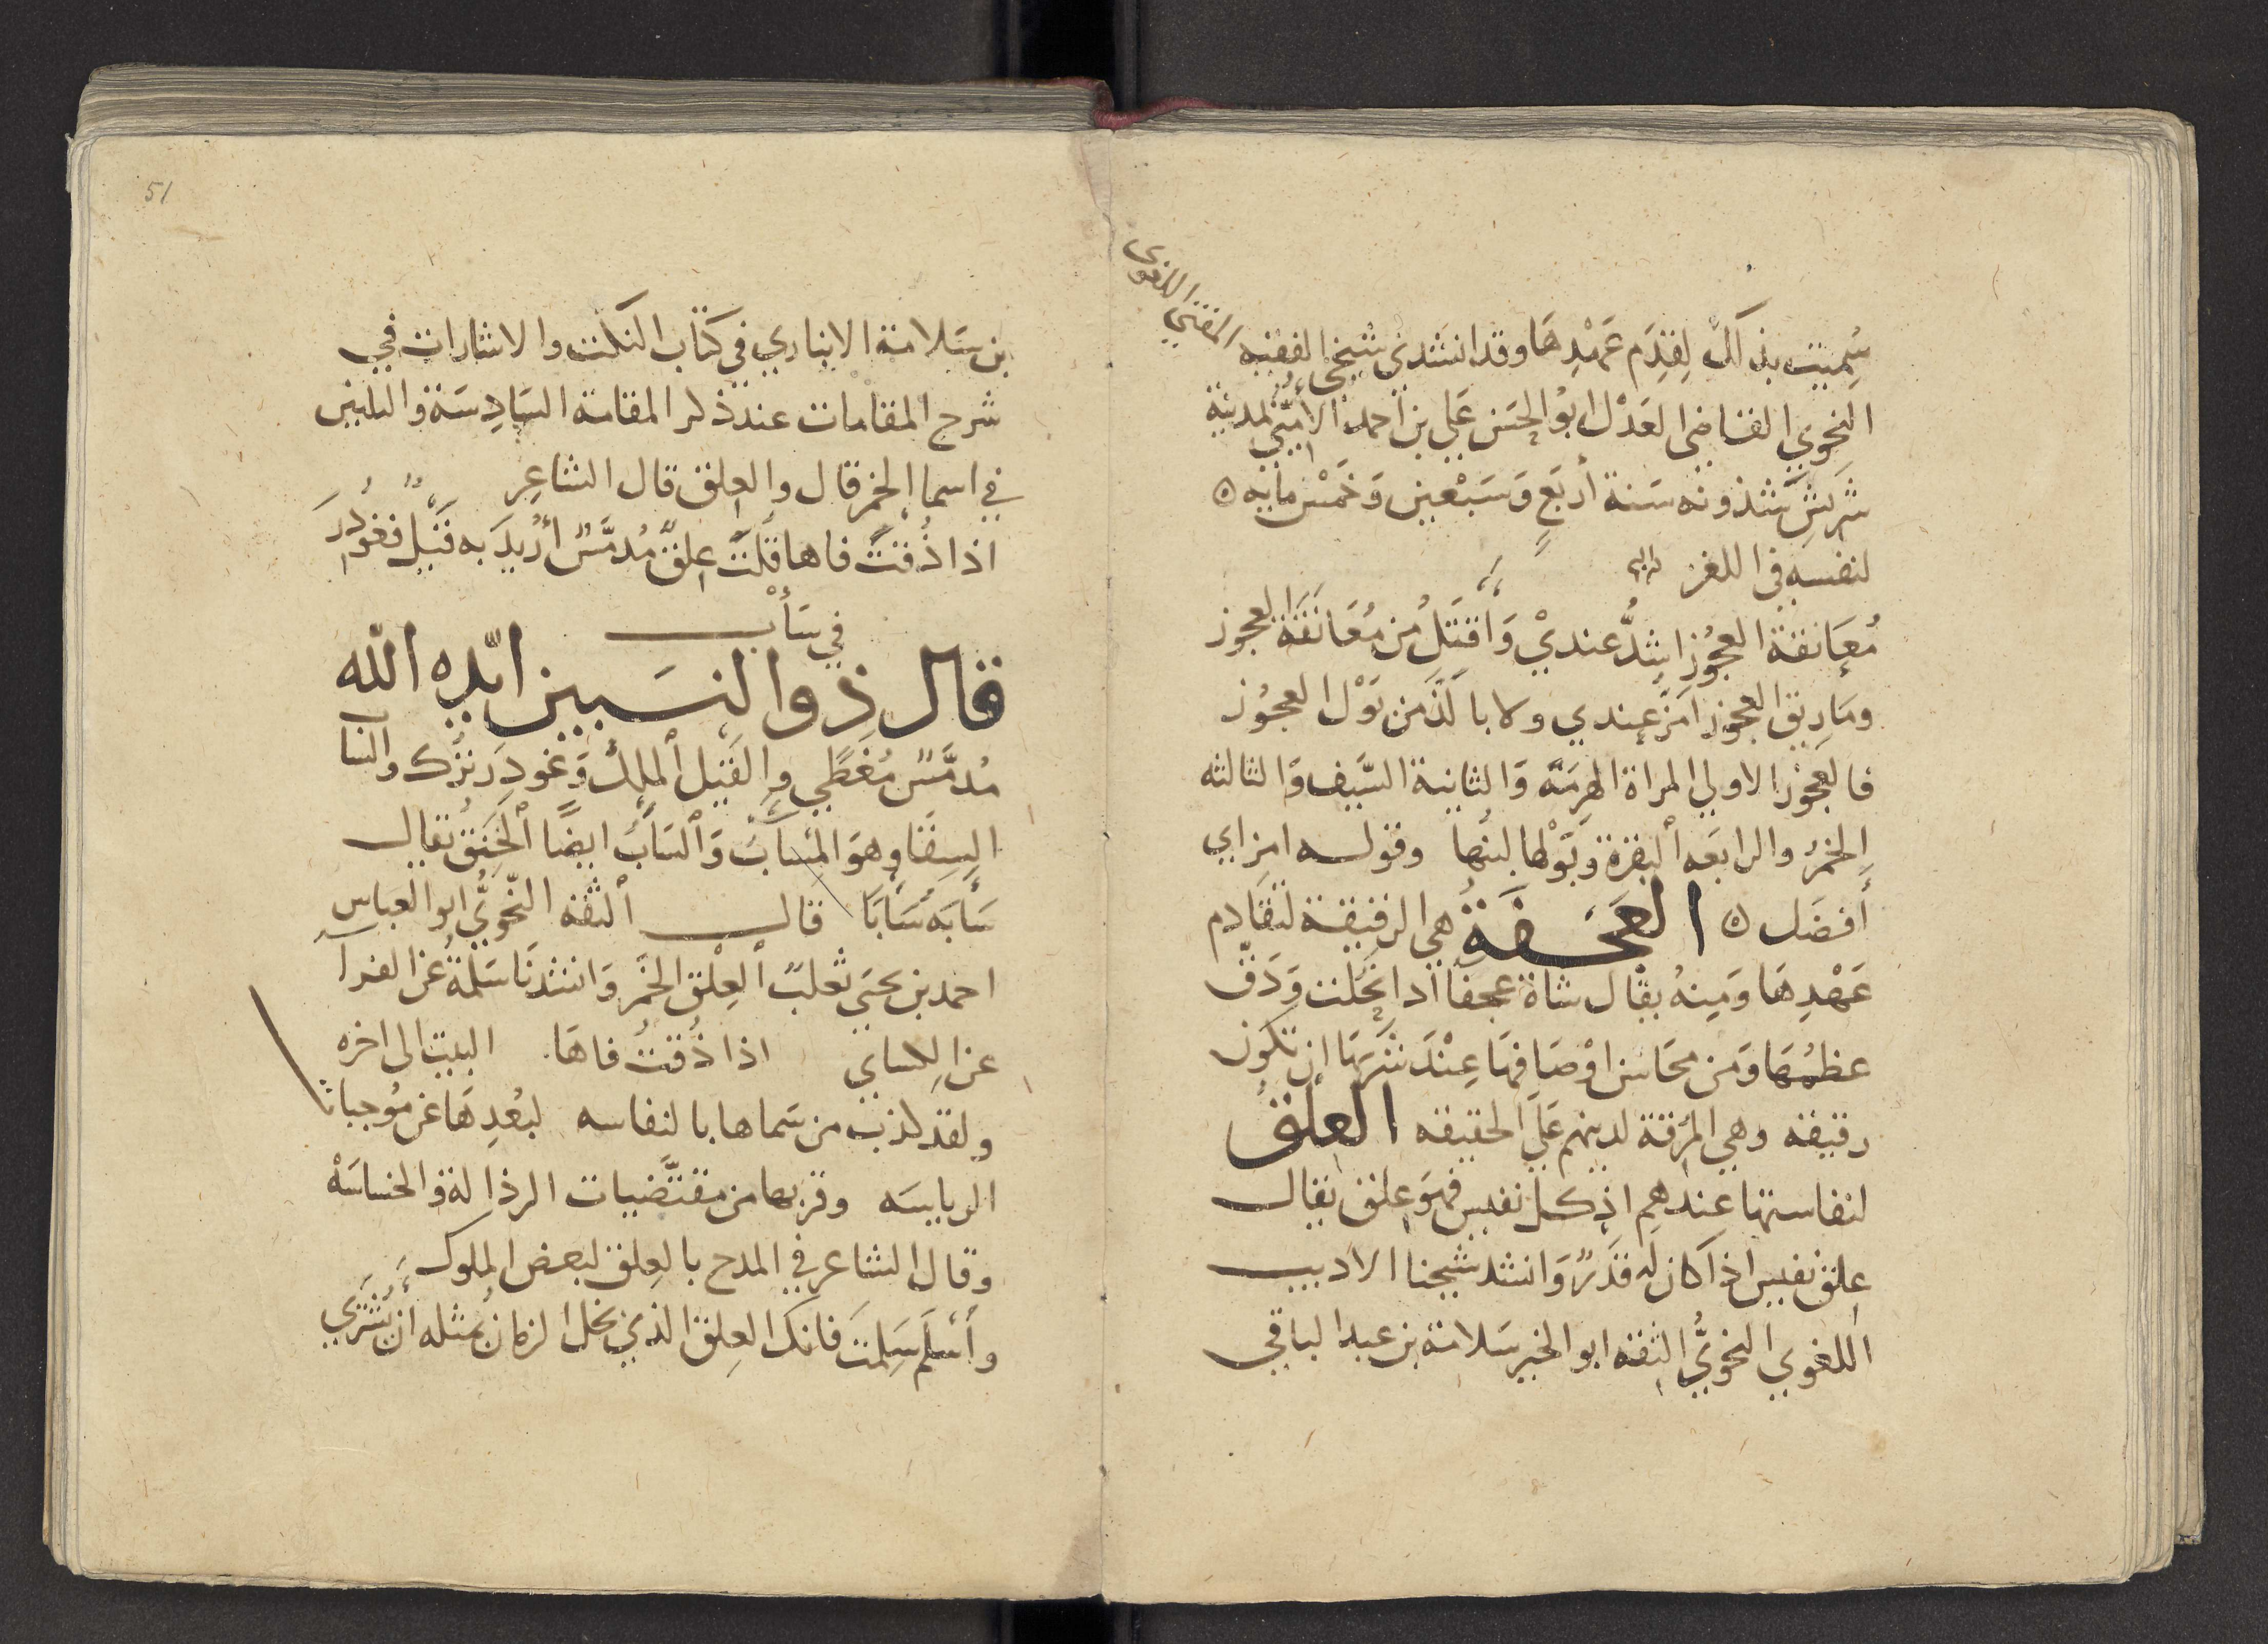 سُمِّيت بذلك لِقِدَم عَهْدِهَا وقد انشدني شيخي الفقيه المفتي اللغوي
النحوي القاضي العَدْل ابُو الحَسَن عَلي بن احمد الأُمَيّي بمدينة
شَرِيش شَذونه سَنة أربَعٍ وَسَبْعين وَخَمْس مايه ٥
لنفسه في اللغز
مُعَانقة العجُوز اشدُّ عنديْ وَاقتَلُ مِن مُعَانَقَة العجوز
ومَا رِيق العجوز امَرّ عِندي ولا بِالَذَّ مَن بَوْل العجُوز
فالعجوُز الاولي المراة الهرِمَه وَالثانية السَّيف وَالثالثه
الخمرُ والرابعَه البقرة وبَوْلها لبنُها وقوله امرّ اي
أفضَل ٥ العَجَفَةُ هي الرقيقة لتقادم
عَهْدِهَا وَمِنهُ يقال شاة عجفا اذا نحُلت وَدَقّ
عظمُهَا وَمن محَاسن اوْصَافهَا عِنْدَ شَرَبَهَا ان تكون
رقيقه وهي المُرِقة لدينهم عَلَي الحقيقه العِلقُ
لنفاستها عندهم اذ كل نفيس فهوَ عِلق يقال
عِلق نفيس اذا كان له قدْرٌ وَانشد شيخنا الاديب
اللغوي النحويُّ الثقه ابو الخير سَلامة بن عبد الباقي
51
بن سَلامة الانباري في كتاب النكت والاشارات في
شرح المقامات عند ذكر المقامة السَادِسَة والثلثين
في اسما الخمر قال والعِلق قال الشاعِر
اذا ذُقتَُ فاها قلتُ عِلقٌ مُدمَّسٌ أُرِيدَ به قَيْلٌ فغُودِرَ
في سَأْب
قال ذو النسَبين ايّده الله
مُدمَّسٌ مُغَطًي وَالقَيْل الملِك وَغودِرَ تُرك والسَاب
السِقا وهوَ المسأب وَالسَأبُ ايضًا الخَنِقُ يقال
سَابَهُ سَأبًا قال الثقه النّحويُّ ابو العباس
احمد بن يحيَى ثعلبٌ العِلْق الخَمْر وَانشدنَا سَلمةُ عن الفرا
عن الكِساي اذا ذُقتُ فاهَا البيت الى اخره
ولقد كذب من سَماها بالنفاسه لبُعْدِهَا عن مُوجبات
الرياسَه وقربها من مقتضَيات الرذالة والخساسَهْ
وقال الشاعر في المدح بالعِلق لبعض الملوك
وأسْلَم سَلِمْتَ فانك العِلق الذي بخل الزمانُ بمثله أن يُشتَري